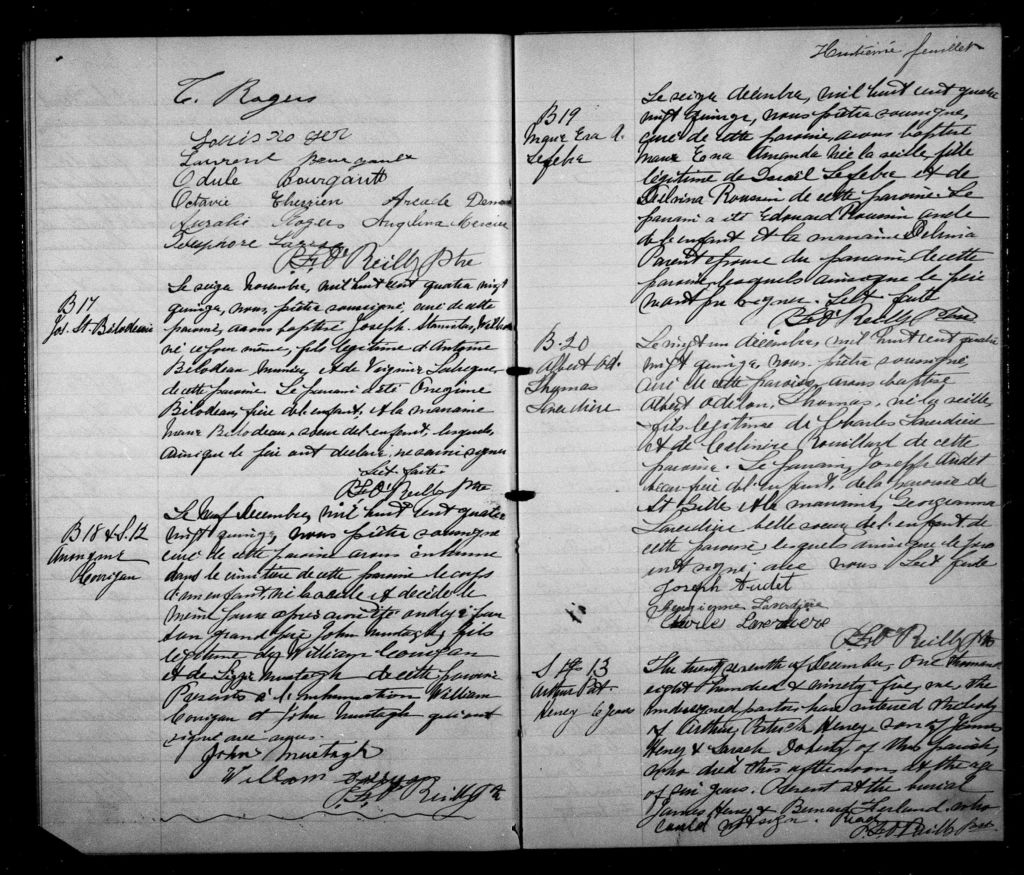 T. Rogers
Louis Roger
Laurent Bourgault
Odule Bourgault
Octavie Therrien Arcade
Auralis Rogers Angelina Mercier
Telesphore
P. F. O'Reilly Ptre
B 17
Jos. St. Bilodeau
Le seize Novembre, mil huit cent quatre vingt
quinze, nous, prêtre soussigné, curé de cette
paroisse, avons baptisé Joseph Stanislas,
né ce jour même, fils legitime d'Antoine
Bilodeau, et de Virginie
de cette paroisse. Le parrain a été Onezime
Bilodeau, frère de l'enfant, et la marraine
Marie Bilodeau, soeur de l'enfant, lesquels,
ainsi que le père ont déclaré ne savoir signer
Lect. faite
P. F. O'Reilly Ptre
B 18 & S. 12
Anonyme
Corrigan
Le neuf Decembre, mil huit cent quatre
vingt quinze, nous prêtre soussigné
curé de cette paroisse avons inhumé
dans le cimetière de cette paroisse le corps
d'un enfant, né la veille et décédé le
même jour après avoir été ondoyé par
son grand père John Murtagh, fils
legitime de William Corrigan
et de Lizzie Murtagh de cette paroisse
Presents à l'inhumation William
Corrigan et John Murtagh qui ont
signé avec nous.
John Murtagh
William Corrigan
P. F. O'Reilly Ptre
Huitième feuillet
B 19
Marie Eva A.
Lefebre
Le seize décembre, mil huit cent quatre
vingt quinze, nous prêtre soussigné,
curé de cette paroisse, avons baptisé
Marie Eva Amanda née la veille fille
légitime de Israël Lefebre et de
Délvina Roussin de cette paroisse. Le
parrain a été Edouard Roussin oncle
de l'enfant et la marraine Delvina
Parent épouse du parrain de cette
paroisse, lesquels ainsi que le père
n'ont pu signer. Lect. faite
P. F. O'Reilly Ptre
B. 20
Albert Od.
Thomas
Laverdière
Le vingt un décembre, mil huit cent quatre
vingt quinze, nous prêtre soussigné,
curé de cette paroisse, avons baptisé
Albert Odilon, Thomas, né la veille,
fils legitime de Charles Laverdière
et de Celinire Rouillard de cette
paroisse. Le parrain, Joseph Audet
beau-frère de l'enfant, de la paroisse de
St Gilles et la marraine, Georgianna
Laverdière belle soeur de l'enfant de
cette paroisse, lesquels ainsi que le père
ont signé avec nous. Lect. faite
Joseph Audet
Georgienne Laverdière
Charles Laverdiere
P. F. O'Reilly Ptre
S 13
Arthur Pat.
Henery 6 years
The twenty seventh of December, One thousand
eight hundred & ninety five, we, the
undersigned pastor, have interred the body
of Arthur, Patrick Henery, son of James
Henery & Sarah Doherty of this parish,
who died this afternoon, at the age
of six years. Present at the burial
James Henery & Bernard who
could not sign. Read
P. F. O'Reilly Past.